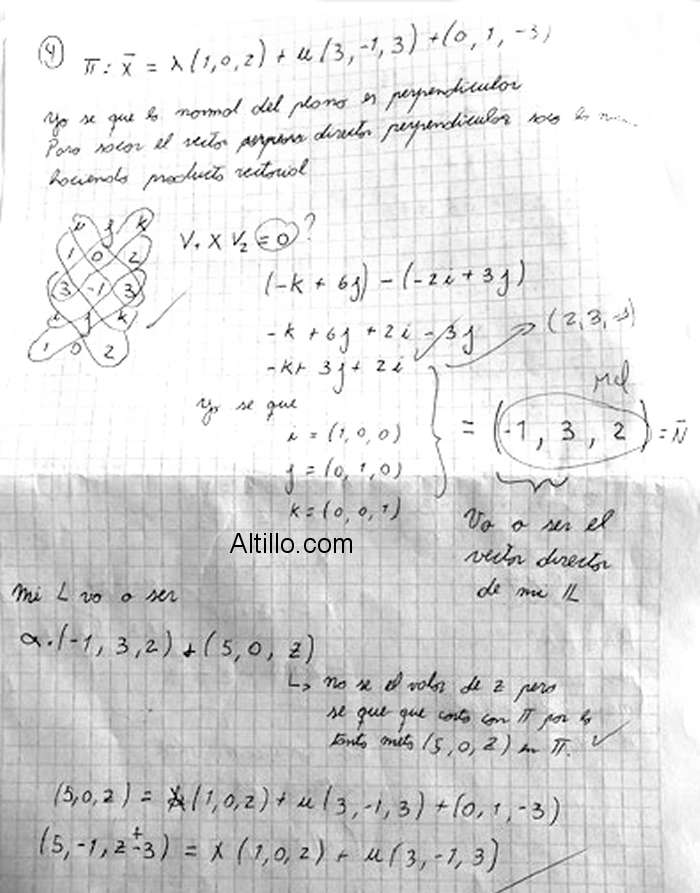 4) Π: x̄ = λ(1,0,2) + μ(3,-1,3) + (0,1,-3)
Yo se que la normal del plano es perpendicular
Para sacar el vector director perpendicular saco la
haciendo producto vectorial
i j k
1 0 2
3 -1 3
i j k
1 0 2
V₁ × V₂ = 0 ?
(-k + 6j) - (-2i + 3j)
-k + 6j + 2i - 3j → (2,3,-1)
-k + 3j + 2i
Yo se que
i = (1,0,0)
j = (0,1,0)
k = (0,0,1)
Mal
= (-1, 3, 2) = N̄
Va a ser el
vector director
de mi L
Altillo.com
Mi L va a ser
α.(-1, 3, 2) + (5, 0, z)
↳ no se el valor de z pero
se que que corta con Π por lo
tanto meto (5,0,z) en Π. ✓
(5,0,z) = λ(1,0,2) + μ(3,-1,3) + (0,1,-3)
(5,-1,z+3) = λ(1,0,2) + μ(3,-1,3)